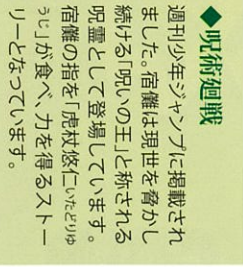 ◆呪術廻戦
週刊少年ジャンプに掲載され
ました。宿儺は現世を脅かし
続ける「呪いの王」と称される
呪霊として登場しています。
宿儺の指を「虎杖悠仁いたどりゆ
うじ」が食べ、力を得るストー
リーとなっています。